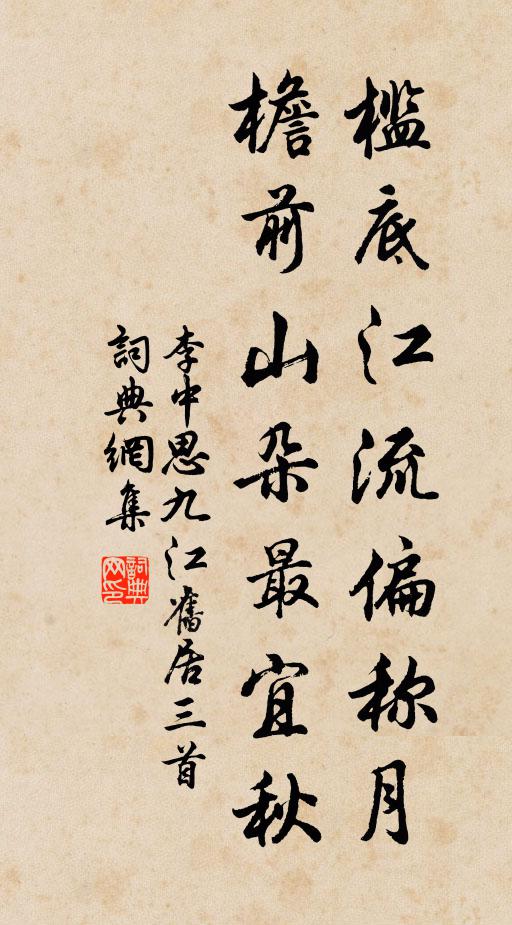 槛底江流偏称月
檐前山朵最宜秋
李中思九江舊居三首
詞典網集
詞典網印